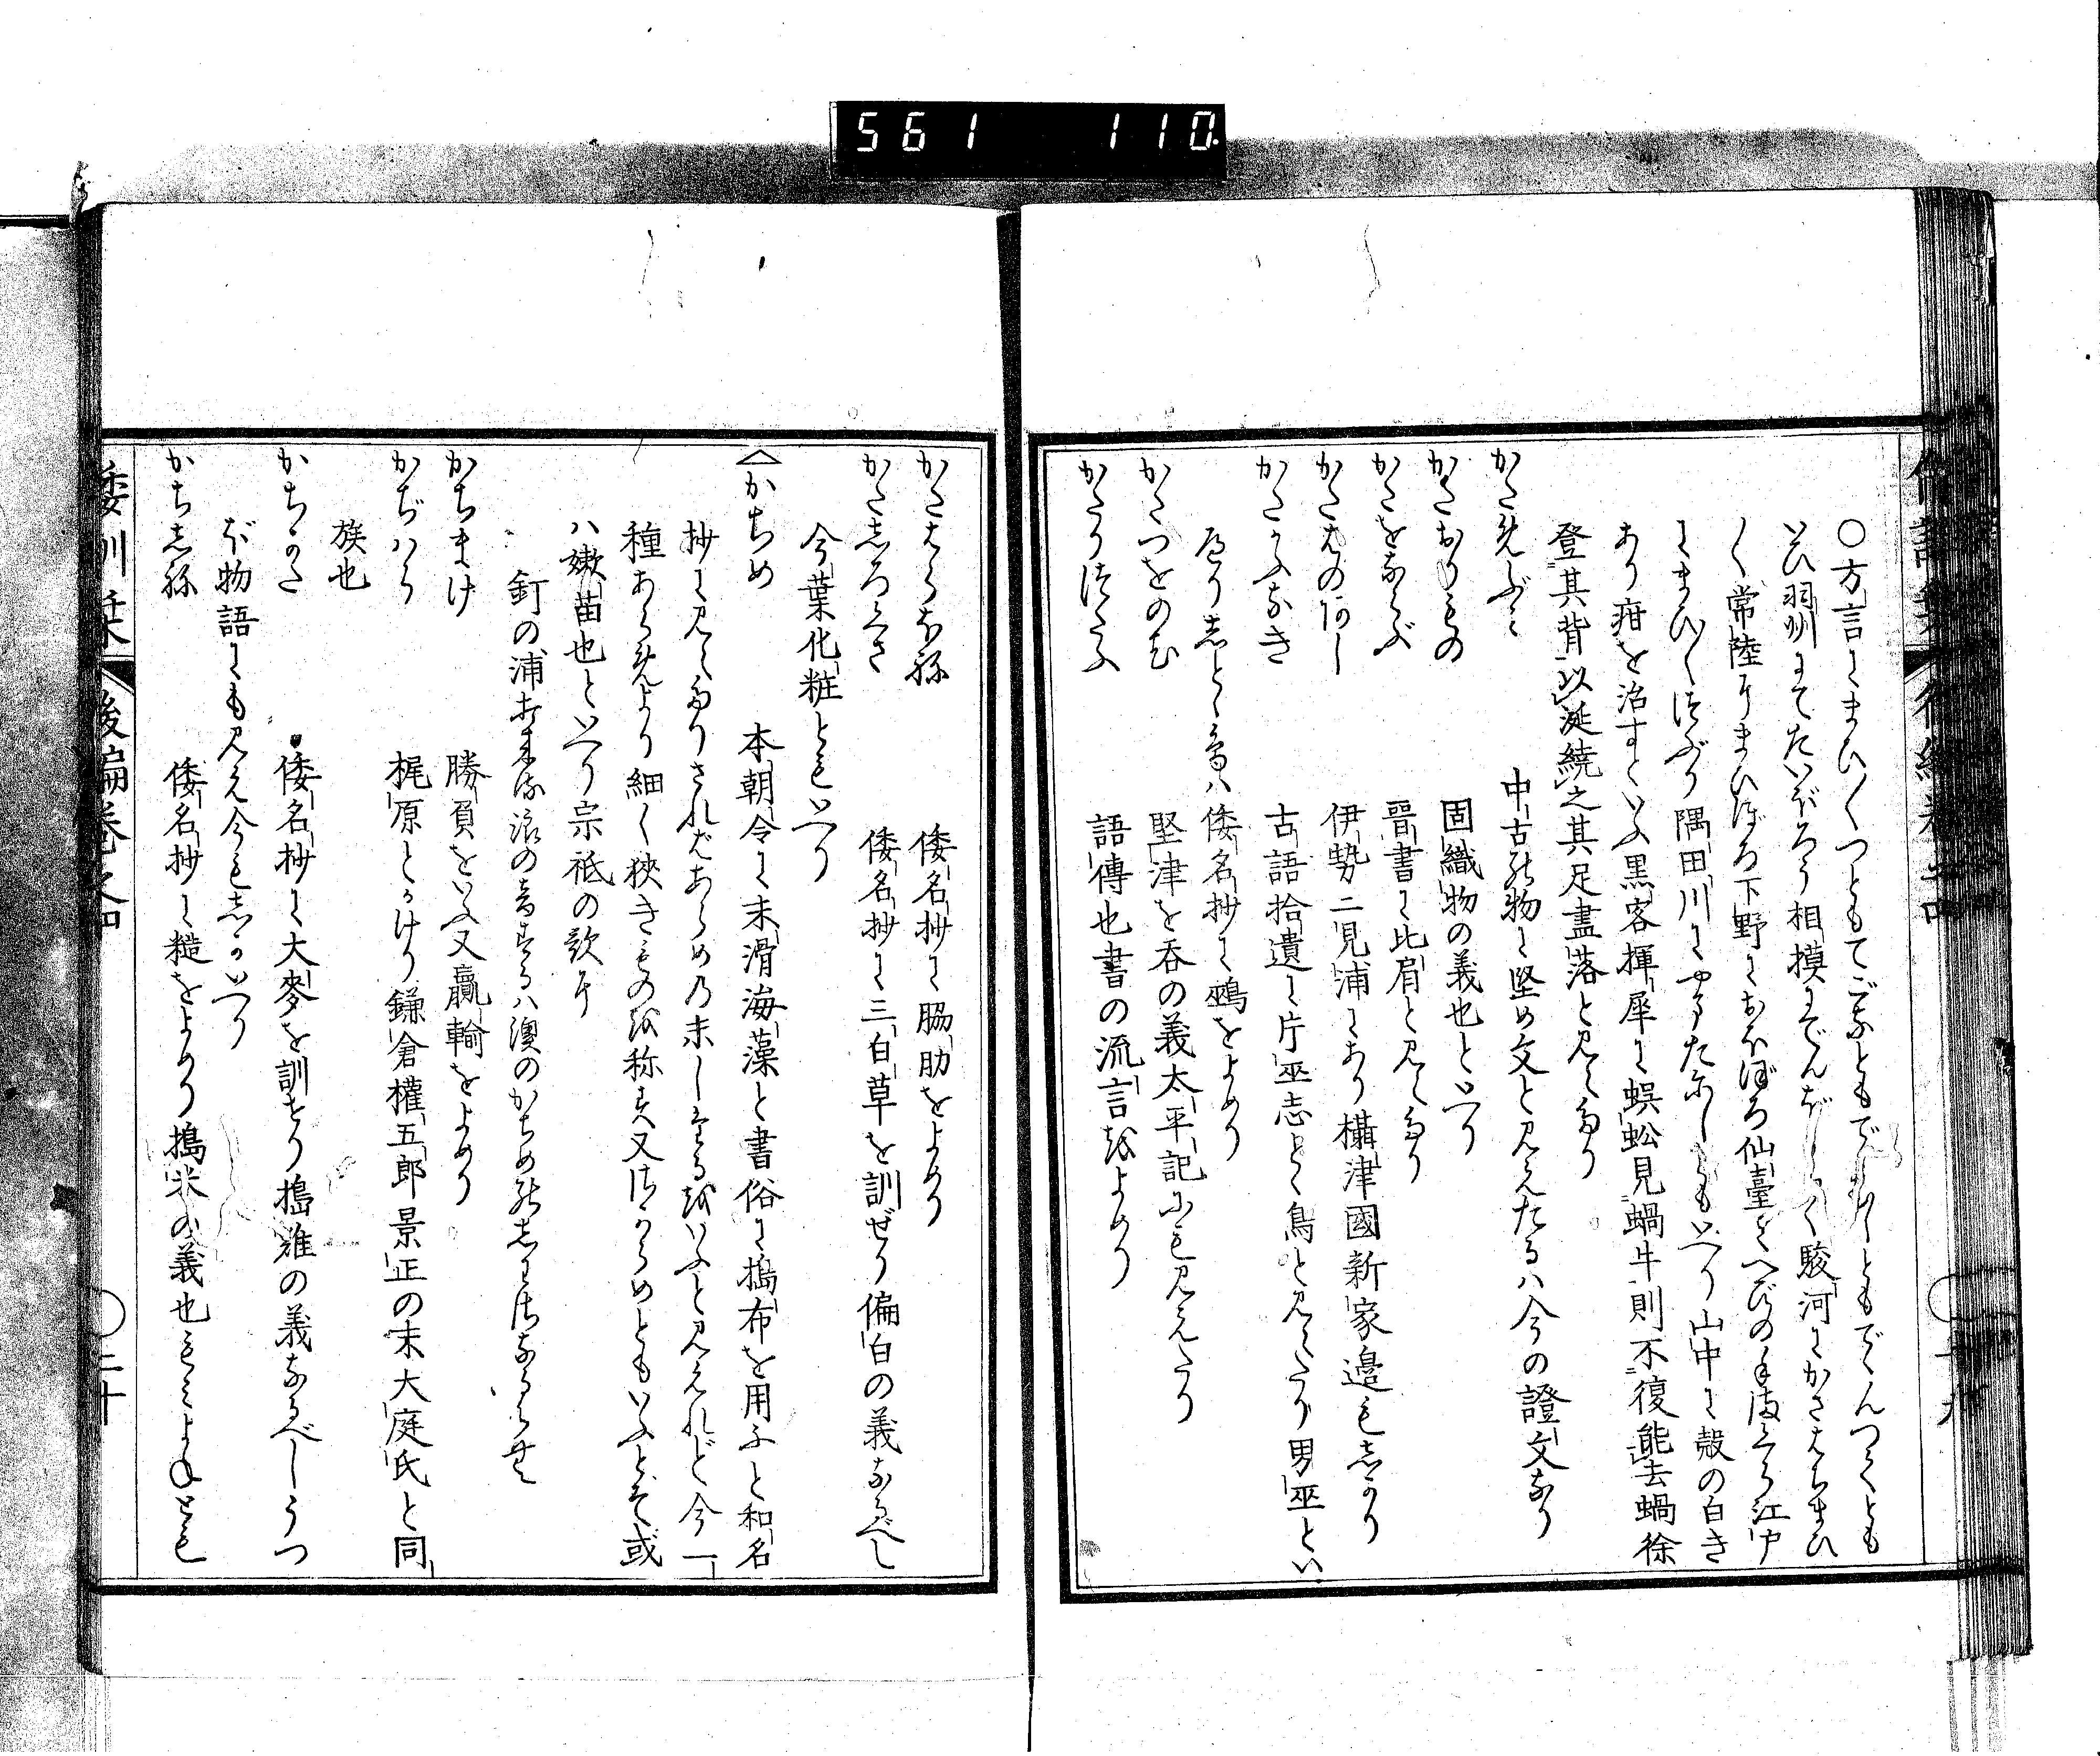 561 110
○方言にまひ〳〵つともてごなともでゝれともでゝんつくとも
いひ羽州にてたいぼろう相摸にでんぼ〳〵駿河にかさはちまひ
〳〵常陸にまひぼろ下野におほぼろ仙臺をへびの手まくら江戸
にまひ〳〵つぶり隅田川にやまたにしともいへり山中に殻の白き
あり疳を治すといふ黒客揮犀に蜈蚣見蝸牛則不復能去蝸徐
登其背以涎繞之其足盡落と見へたり
かためぶみ 中古の物に堅め文と見えたるハ今の證文なり
かたおりもの 固織物の義也といへり
かたをならぶ 晋書に比肩と見へたり
かたはのあし 伊勢二見浦にあり攝津國新家邊もしかり
かたかふなき 古語拾遺に片巫志とゝ鳥と見へたり男巫とい
へりしとゝ鳥ハ倭名抄に鵐をよめり
かたつをのむ 堅津を呑の義太平記にも見えたり
かたりつたふ 語傳也書の流言をよめり
かたはらほね 倭名抄に脇肋をよめり
かたしろくさ 倭名抄に三白草を訓ぜり偏白の義なるべし
今葉化粧ともいへり
かちめ 本朝令に末滑海藻と書俗に搗布を用ふと和名
抄に見へたりされバあらめの末しきるをいふと見えれど今一
種あらめより細く狭きものを称す又さからめともいふとぞ或
ハ嫩苗也といへり宗祗の歌に
釘の浦打来る浪の音するハ澳のかちめのしわさなるらむ
かちまけ 勝負をいふ又贏輸をよめり
かぢハら 梶原とかけり鎌倉權五郎景正の末大庭氏と同
族也
かちかた 倭名抄に大麥を訓せり搗難の義なるべしうつ
ぼ物語にも見え今もしかいへり
かちしね 倭名抄に糙をよめり搗米の義也もみよねとも
倭訓栞 後編巻之四 二十